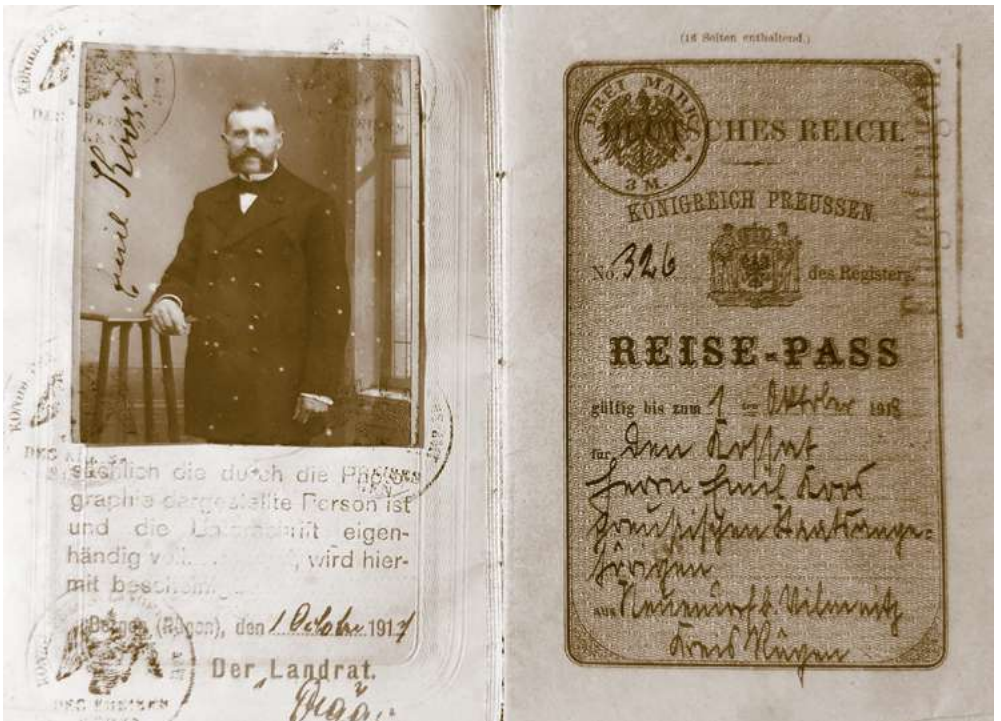 Emil Koos
sächlich die durch die Photo-
graphie dargestellte Person ist
und die Unterschrift eigen-
händig , wird hier-
mit
Bergen (Rügen), den 1 October 1917
Der Landrat.
(16 Seiten enthaltend.)
DREI MARK
3 M.
DEUTSCHES REICH.
KÖNIGREICH PREUSSEN.
No. 326 des Registers.
REISE-PASS
gültig bis zum 1 ten Oktober 1918
für den Kossat
Herrn Emil Koos
preußischen Staatsange-
hörigen
aus Neuendorf b. Vilmnitz
Kreis Rügen